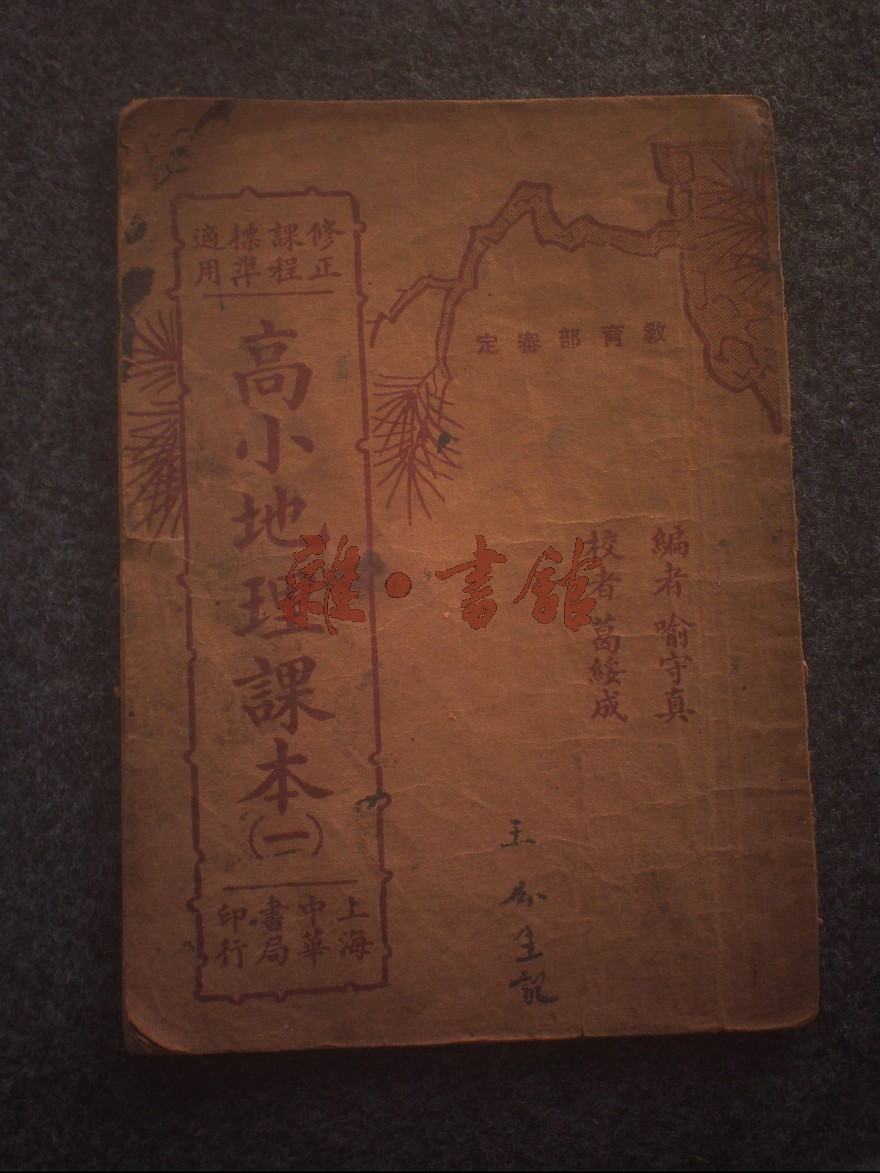 修正
課程
標準
適用
高小地理課本(一)
上海
中華
書局
印行
教育部審定
編者 喻守真
校者 葛綏成
王 生記
雜·書館